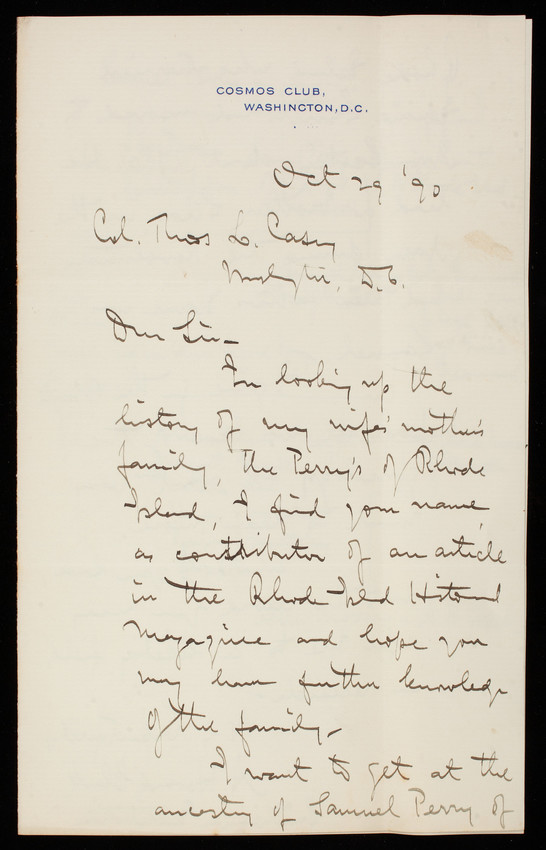 COSMOS CLUB,
WASHINGTON, D.C.
Oct 29 '90
Col. Thos L. Casey
Washington, D.C.
Dear Sir-
In looking up the
history of my wife's mother's
family, the Perry's of Rhode
Island, I find your name,
as contributor of an article
in the Rhode Island Historical
Magazine and hope you
may have further knowledge
of the family.
I want to get at the
ancestry of Samuel Perry of